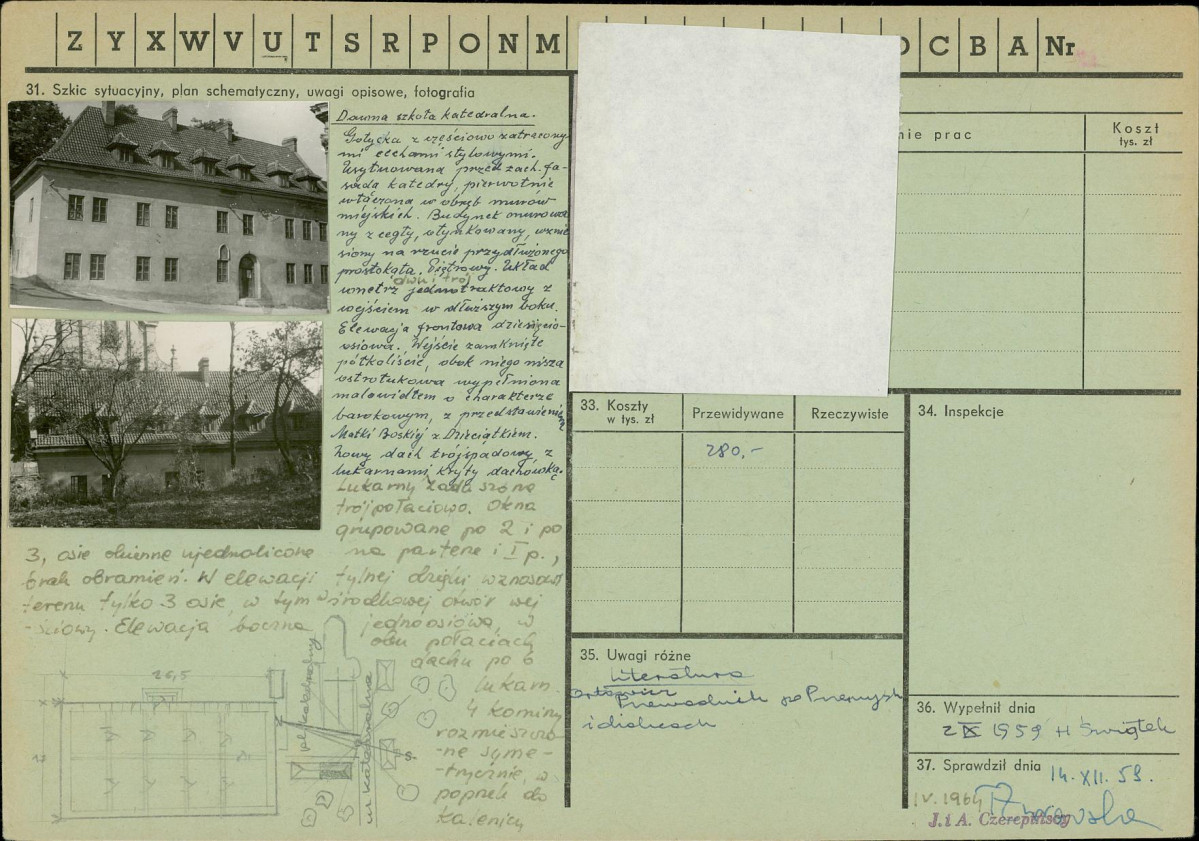 Z Y X W V U T S R P O N M
C B A Nr
31. Szkic sytuacyjny, plan schematyczny, uwagi opisowe, fotografia
Dawna szkoła katedralna.
Gotycka z częściowo zatracony-
mi cechami stylowymi.
Usytuowana przed zach. fa-
sadą katedry, pierwotnie
włączona w obręb murów
miejskich. Budynek murowa-
ny z cegły, otynkowany, wznie-
siony na rzucie przydłużonego
prostokąta. Piętrowy. Układ
dwu i trój
wnętrz jednotraktowy z
wejściem w dłuższym boku.
Elewacja frontowa dziesięcio-
osiowa. Wejście zamknięte
półkoliście, obok niego nisza
ostrołukowa wypełniona
malowidłem o charakterze
barokowym, z przedstawieniem
Matki Boskiej z Dzieciątkiem.
Nowy dach trójspadowy, z
lukarnami, kryty dachówką.
Lukarny zadaszone
trójpołaciowo. Okna
grupowane po 2 i po
3, osie okienne ujednolicone na parterze i I p.,
brak obramień. W elewacji tylnej dzięki wzniosowi
terenu tylko 3 osie, w tym w środkowej otwór wej
-ściowy. Elewacja boczna jednoosiowa, w
obu połaciach
dachu po 6
lukarn.
4 kominy
rozmieszczo-
-ne syme-
-trycznie, w
poprzek do
kalenicy
26,5
pl. katedralny
ul. katedralna
nie prac
Koszt
tys. zł
33. Koszty
w tys. zł
Przewidywane
Rzeczywiste
280,-
34. Inspekcje
35. Uwagi różne
Literatura
Orłowicz
Przewodnik po Przemyślu
i okolicach
36. Wypełnił dnia
2 IX 1959 H Świątek
37. Sprawdził dnia
14.XII.59.
IV.1964
J. i A. Czerepińscy